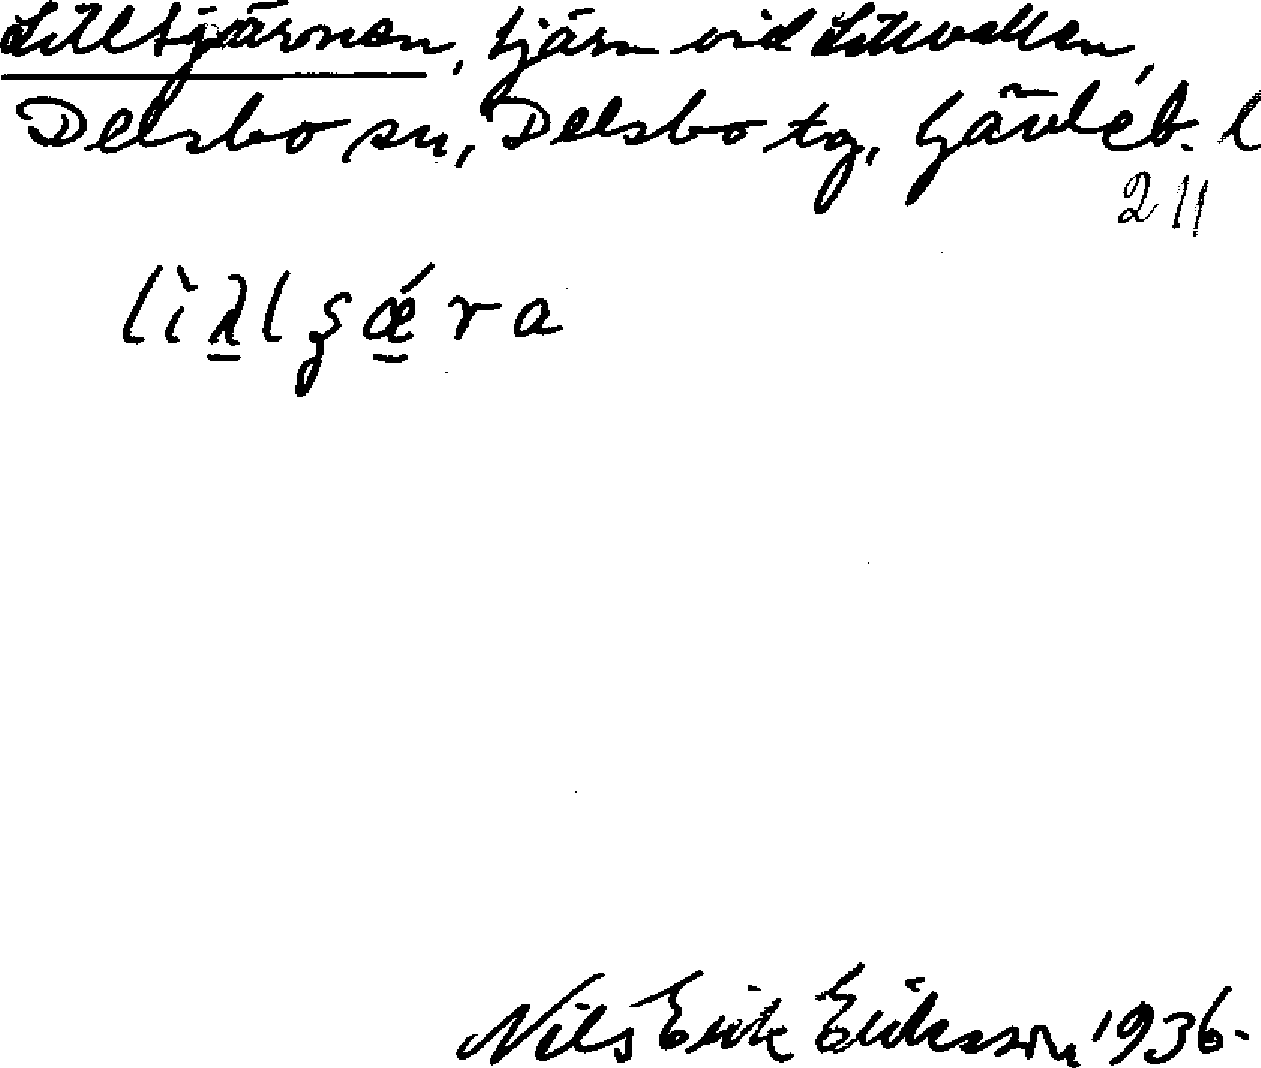 Lilltjärnen, tjärn vid Lillvallen,
Delsbo sn, Delsbo tg, Gävleb. l
211
Nils Erik Eriksson 1936.